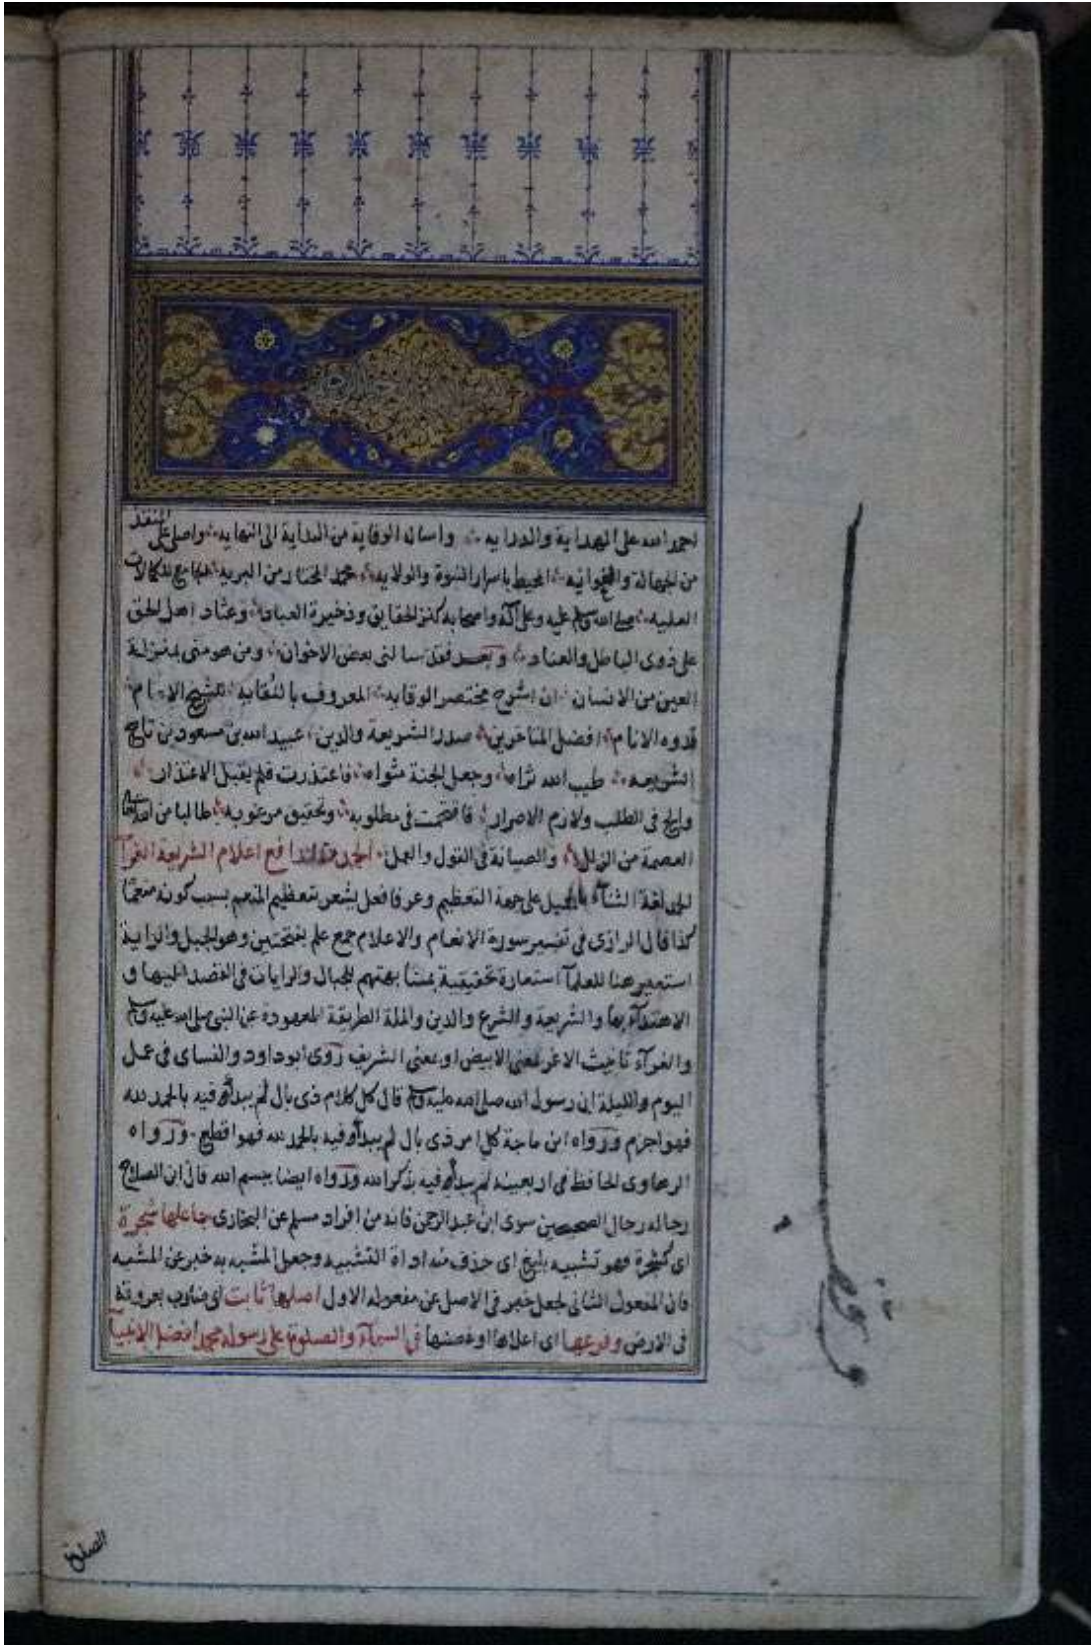 احمد الله على الهداية والدرايه واساله الوقاية من البداية الى النهايه واصلى على المنقذ
من الجهالة والغوايه المحيط باسرار النبوة والولايه محمد المختار من البريه الجامع للكمالات
العليه صلى الله وسلم عليه وعلى آله واصحابه كنز الحقايق وذخيرة العباد وعتاد اهل الحق
على ذوى الباطل والعناد وبعد فقد سالنى بعض الاخوان ومن هو منى بمنزلة
العين من الانسان ان اشرح مختصر الوقايه المعروف بالنُقايه للشيخ الامام
قدوه الانام افضل المتاخرين صدر الشريعة والدين عبيد الله بن مسعود بن تاج
الشريعه طيب الله ثراه وجعل الجنة مثواه فاعتذرت فلم يقبل الاعتذار
والح فى الطلب ولازم الاصرار فاقتحمت فى مطلوبه وتحقيق مرغوبه طالبا من الله
العصمة من الزلل والصيانة فى القول والعمل الحمد لله رافع اعلام الشريعة الغرآ
الحمد لغة الثنآء بالجميل على جهة التعظيم وعرفا فعل يشعر بتعظيم المنعم بسبب كونه منعما
كذا قال الرازى فى تفسير سورة الانعام والاعلام جمع علم بفتحتين وهو الجبل والراية
استعير هنا للعلمآ استعارة تحقيقية بمشابهتهم للجبال والرايات فى القصد اليها و
الاهتدآء بها والشريعة والشرع والدين والملة الطريقة المعهودة عن النبى صلى الله عليه وسلم
والغرآء تانيث الاغر بمعنى الابيض او بمعنى الشريف روى أبو داود والنساى فى عمل
اليوم والليلة ان رسول الله صلى الله عليه وسلم قال كل كلام ذى بال لم يبدأ فيه بالحمد لله
فهو اجزم ورواه ابن ماجة كل امر ذى بال لم يبدأ فيه بالحمد لله فهو اقطع ورواه
الرهاوى الحافظ فى اربعينه لم يبدأ فيه بذكر الله ورواه ايضا ببسم الله قال ابن الصلاح
رجاله رجال الصحيحين سوى ابن عبد الرحمن فانه من افراد مسلم عن البخارى جاعلها شجرة
اى كشجرة فهو تشبيه بليغ اى حذف منه اداة التشبيه وجعل المشبه به خبر عن المشبه
فان المفعول الثانى لجعل خبر فى الاصل عن مفعوله الاول اصلها ثابت اى ضارب بعروقه
فى الارض وفرعها اى اعلاها او غصنها فى السمآء والصلوة على رسوله محمد افضل الانبيآ